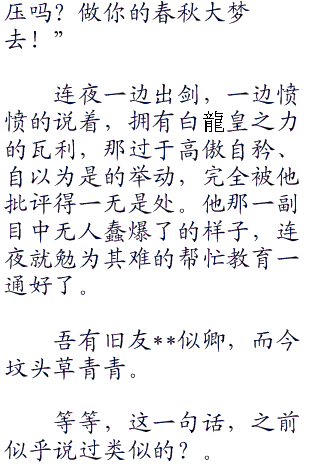 压吗？做你的春秋大梦
去！”
连夜一边出剑，一边愤
愤的说着，拥有白龍皇之力
的瓦利，那过于高傲自矜、
自以为是的举动，完全被他
批评得一无是处。他那一副
目中无人蠢爆了的样子，连
夜就勉为其难的帮忙教育一
通好了。
吾有旧友**似卿，而今
坟头草青青。
等等，这一句话，之前
似乎说过类似的？。